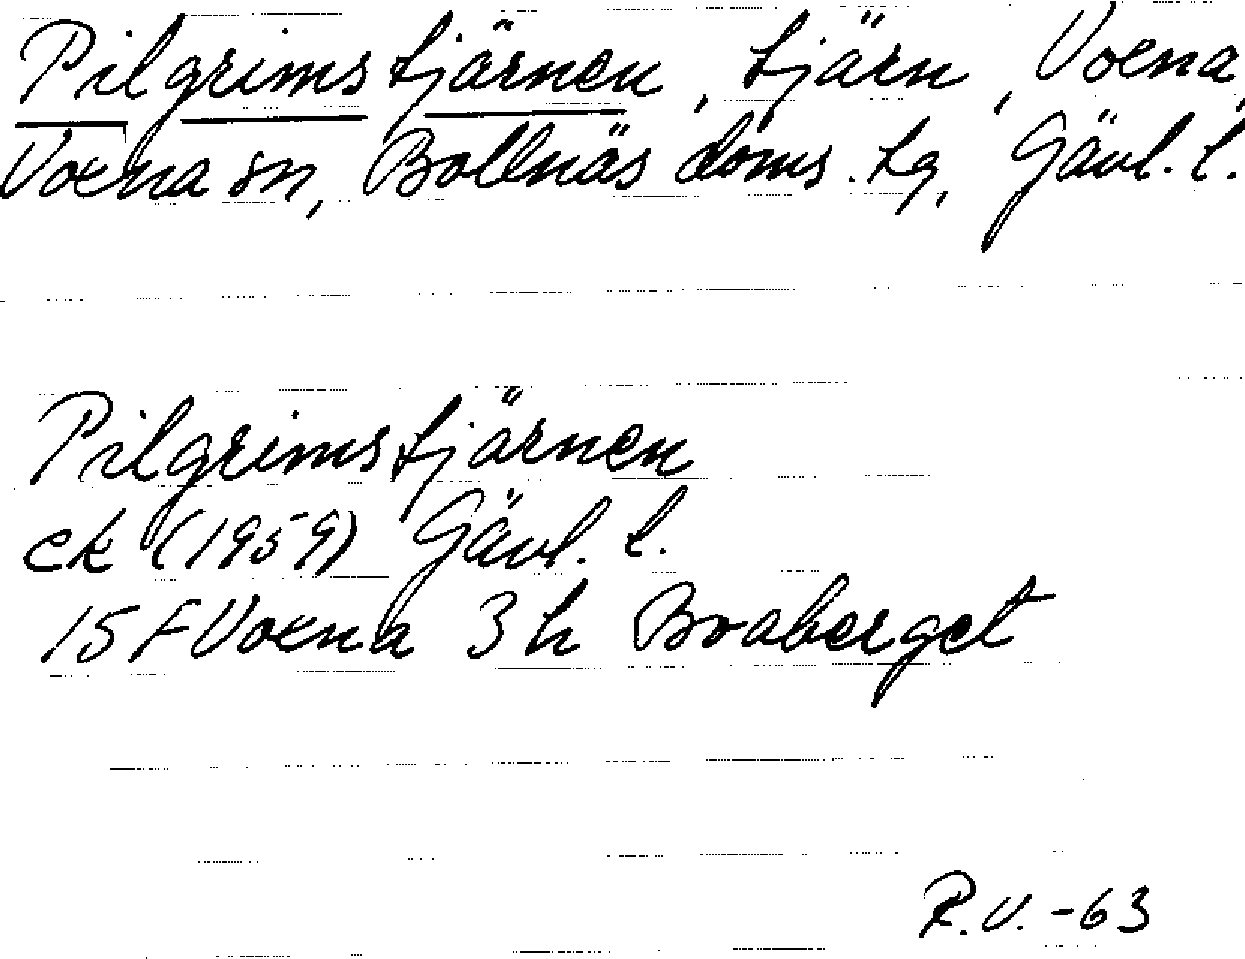 Pilgrimstjärnen, tjärn, Voxna,
Voxna sn, Bollnäs doms. tg, Gävl. l.
Pilgrimstjärnen
ek (1959) Gävl. l.
15 F Voxna 3 h Broaberget
R.V. -63